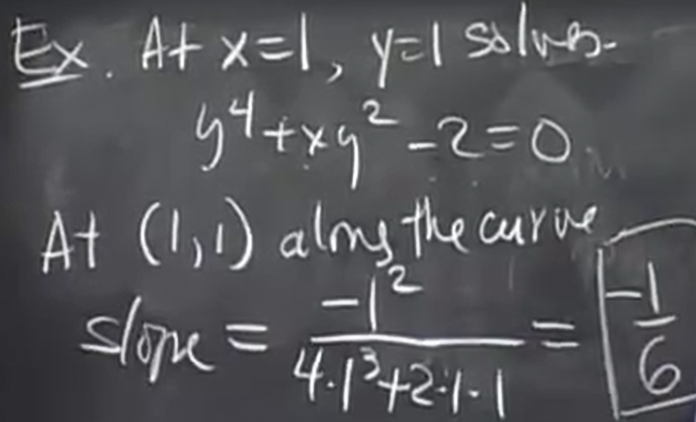 Ex. At x=1, y=1 solves
y⁴+xy²-2=0
At (1,1) along the curve
slope = -1²/(4·1³+2·1·1) = -1/6